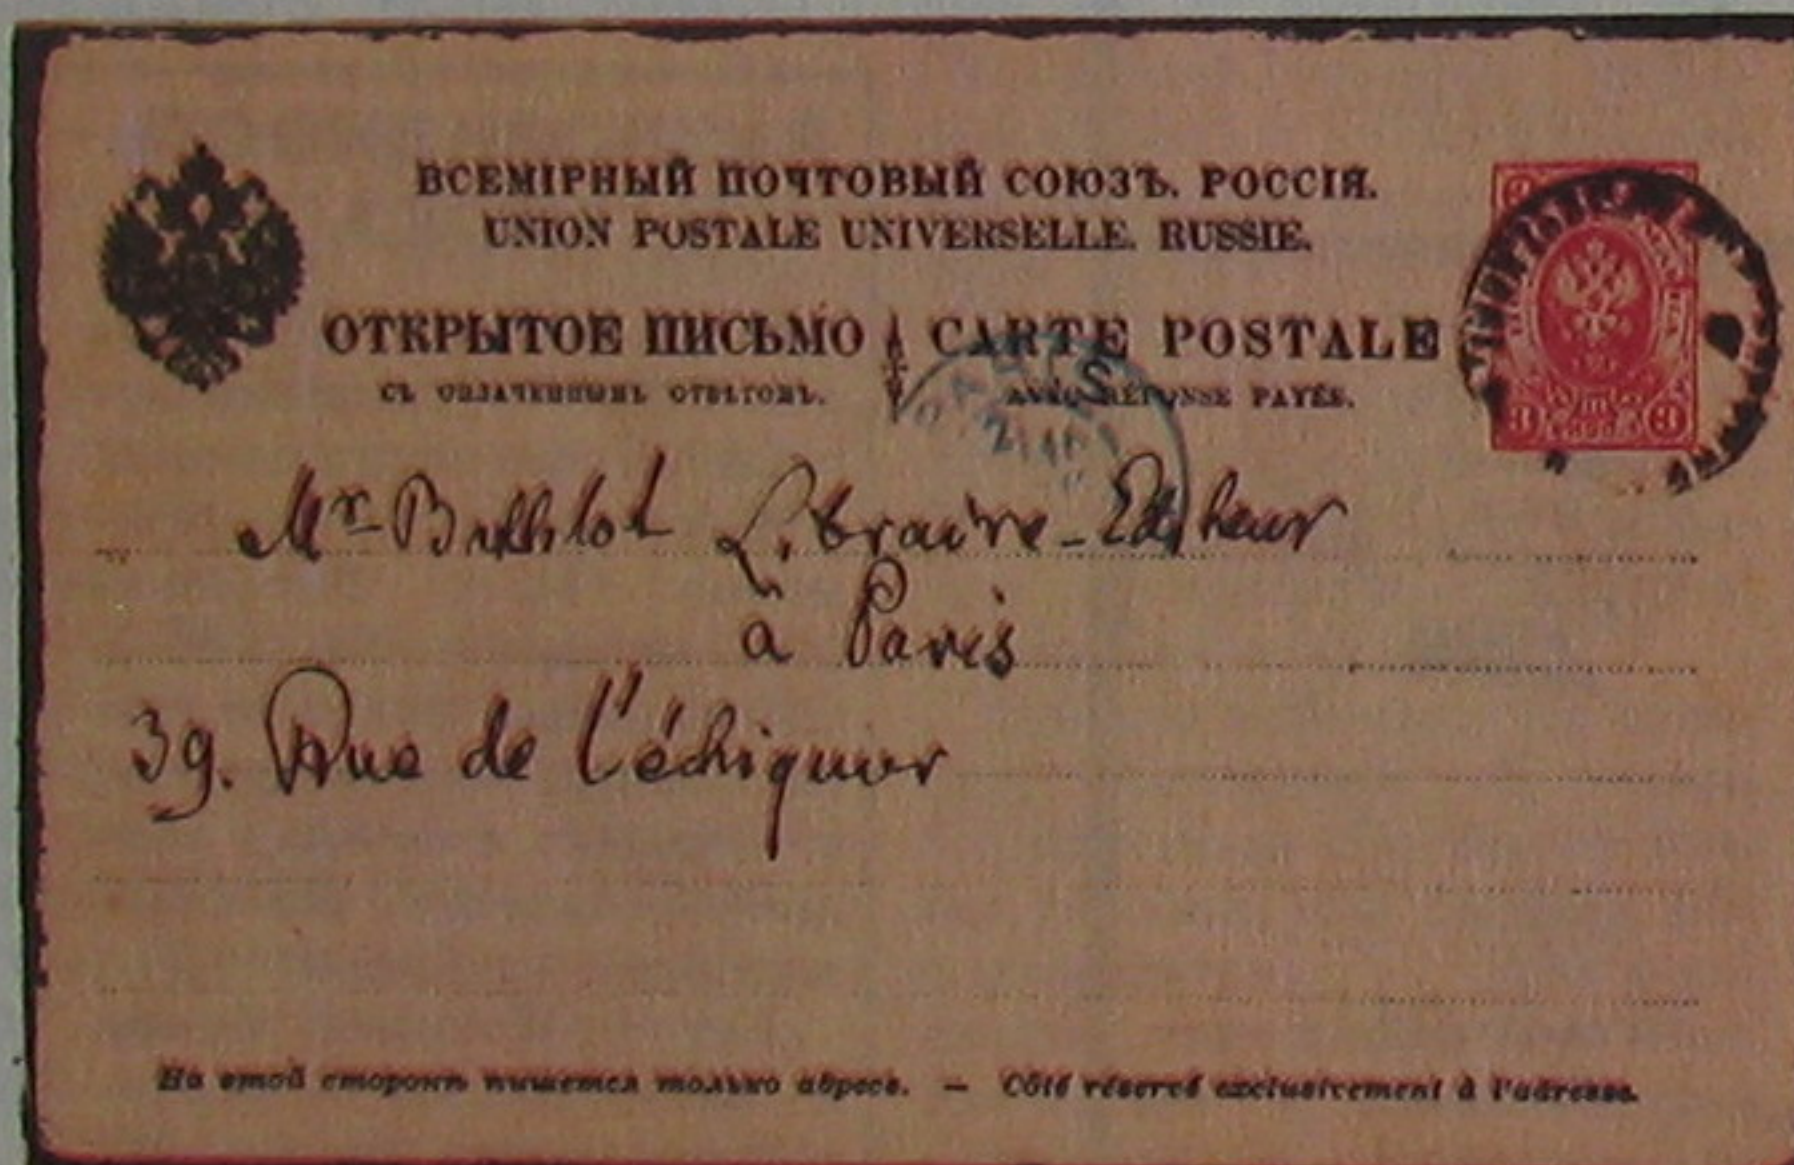 ВСЕМІРНЫЙ ПОЧТОВЫЙ СОЮЗЪ. РОССІЯ.
UNION POSTALE UNIVERSELLE. RUSSIE.
ОТКРЫТОЕ ПИСЬМО CARTE POSTALE
СЪ ОПЛАЧЕННЫМЪ ОТВѢТОМЪ. AVEC RÉPONSE PAYÉE.
PARIS
3 3
Mr Libraire-Editeur
à Paris
39. Rue de l'échiquier
На этой сторонѣ пишется только адресъ. — Côté réservé exclusivement à l'adresse.